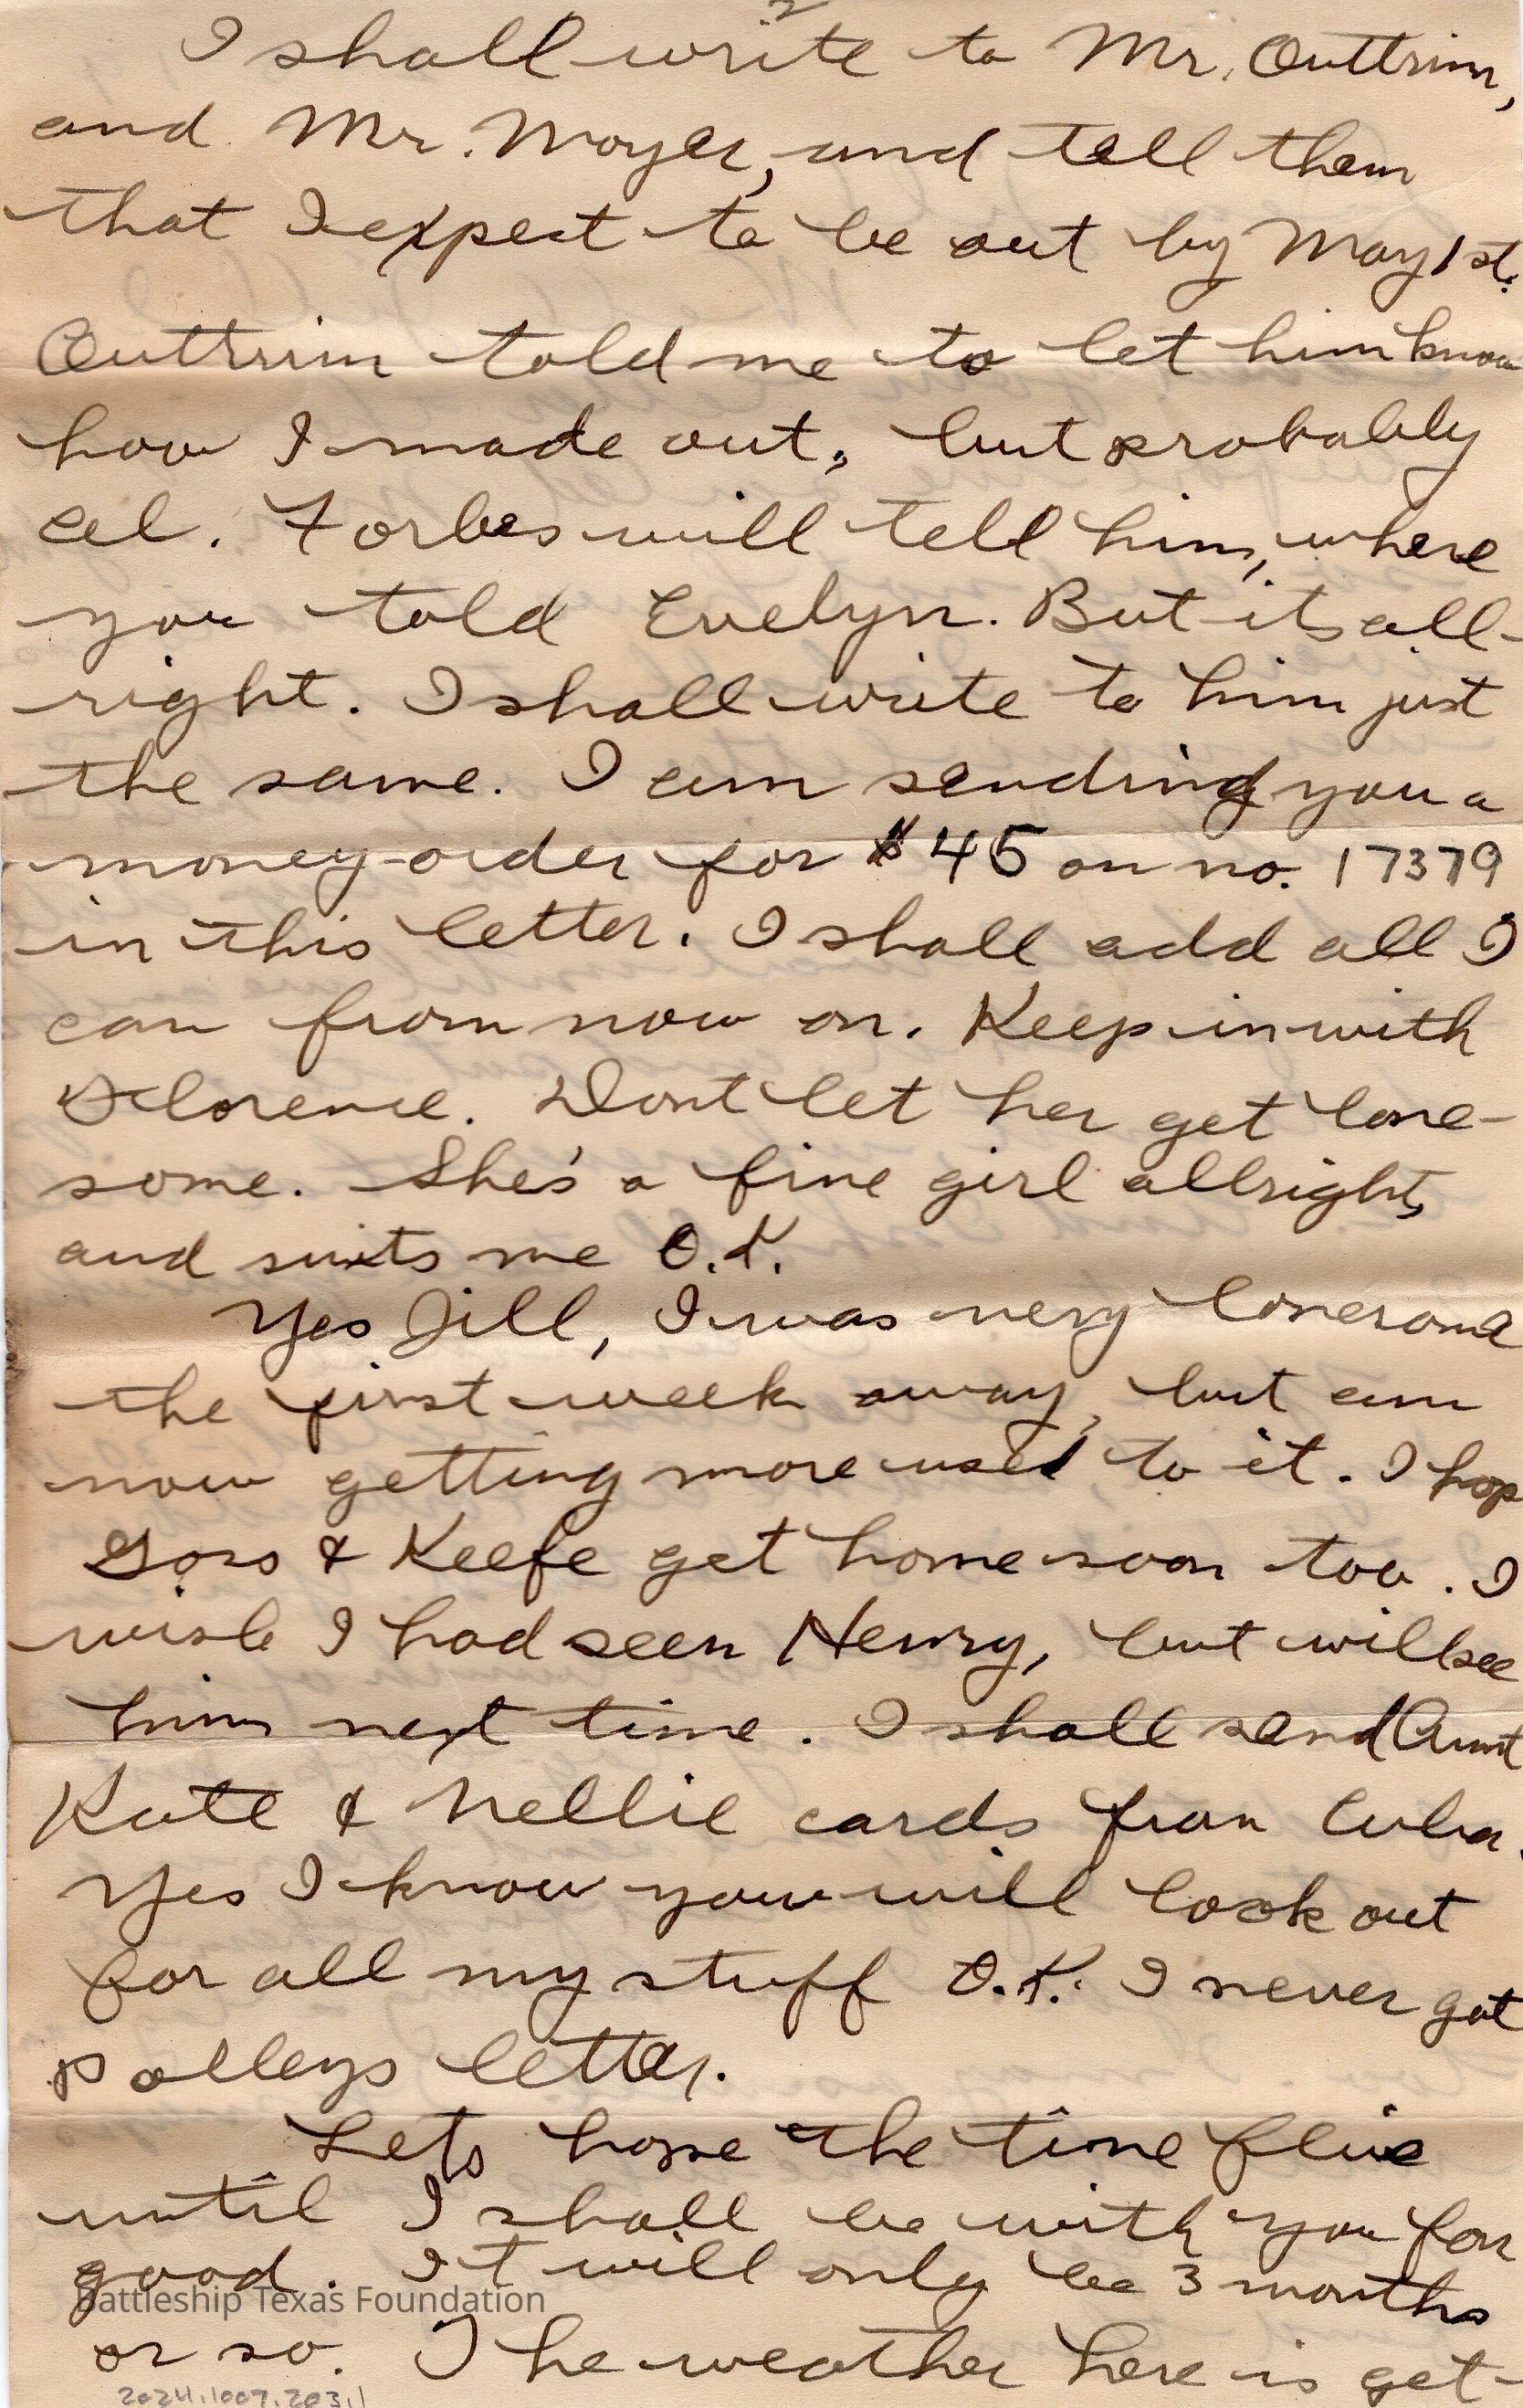 2
I shall write to Mr. Outtrim,
and Mr. Moyer, and tell them
that I expect to be out by May 1st.
Outtrim told me to let him know
how I made out, but probably
el. Forbes will tell him, where
you told Evelyn. But its all-
right. I shall write to him just
the same. I am sending you a
money-order for $45 on no. 17379
in this letter. I shall add all I
can from now on. Keep in with
Florence. Dont let her get lone-
some. She's a fine girl allright,
and suits me O.K.
Yes Jill, I was very lonesome
the first week away, but am
now getting more used to it. I hop
Goss & Keefe get home soon too. I
wish I had seen Henry, but will see
him next time. I shall send Aunt
Kate & Nellie cards from Cuba.
Yes I know you will look out
for all my stuff O.K. I never got
Polleys letter.
Lets hope the time flies
until I shall be with you for
good. It will only be 3 months
Battleship Texas Foundation
or so. The weather here is get-
2024.1007.203.1